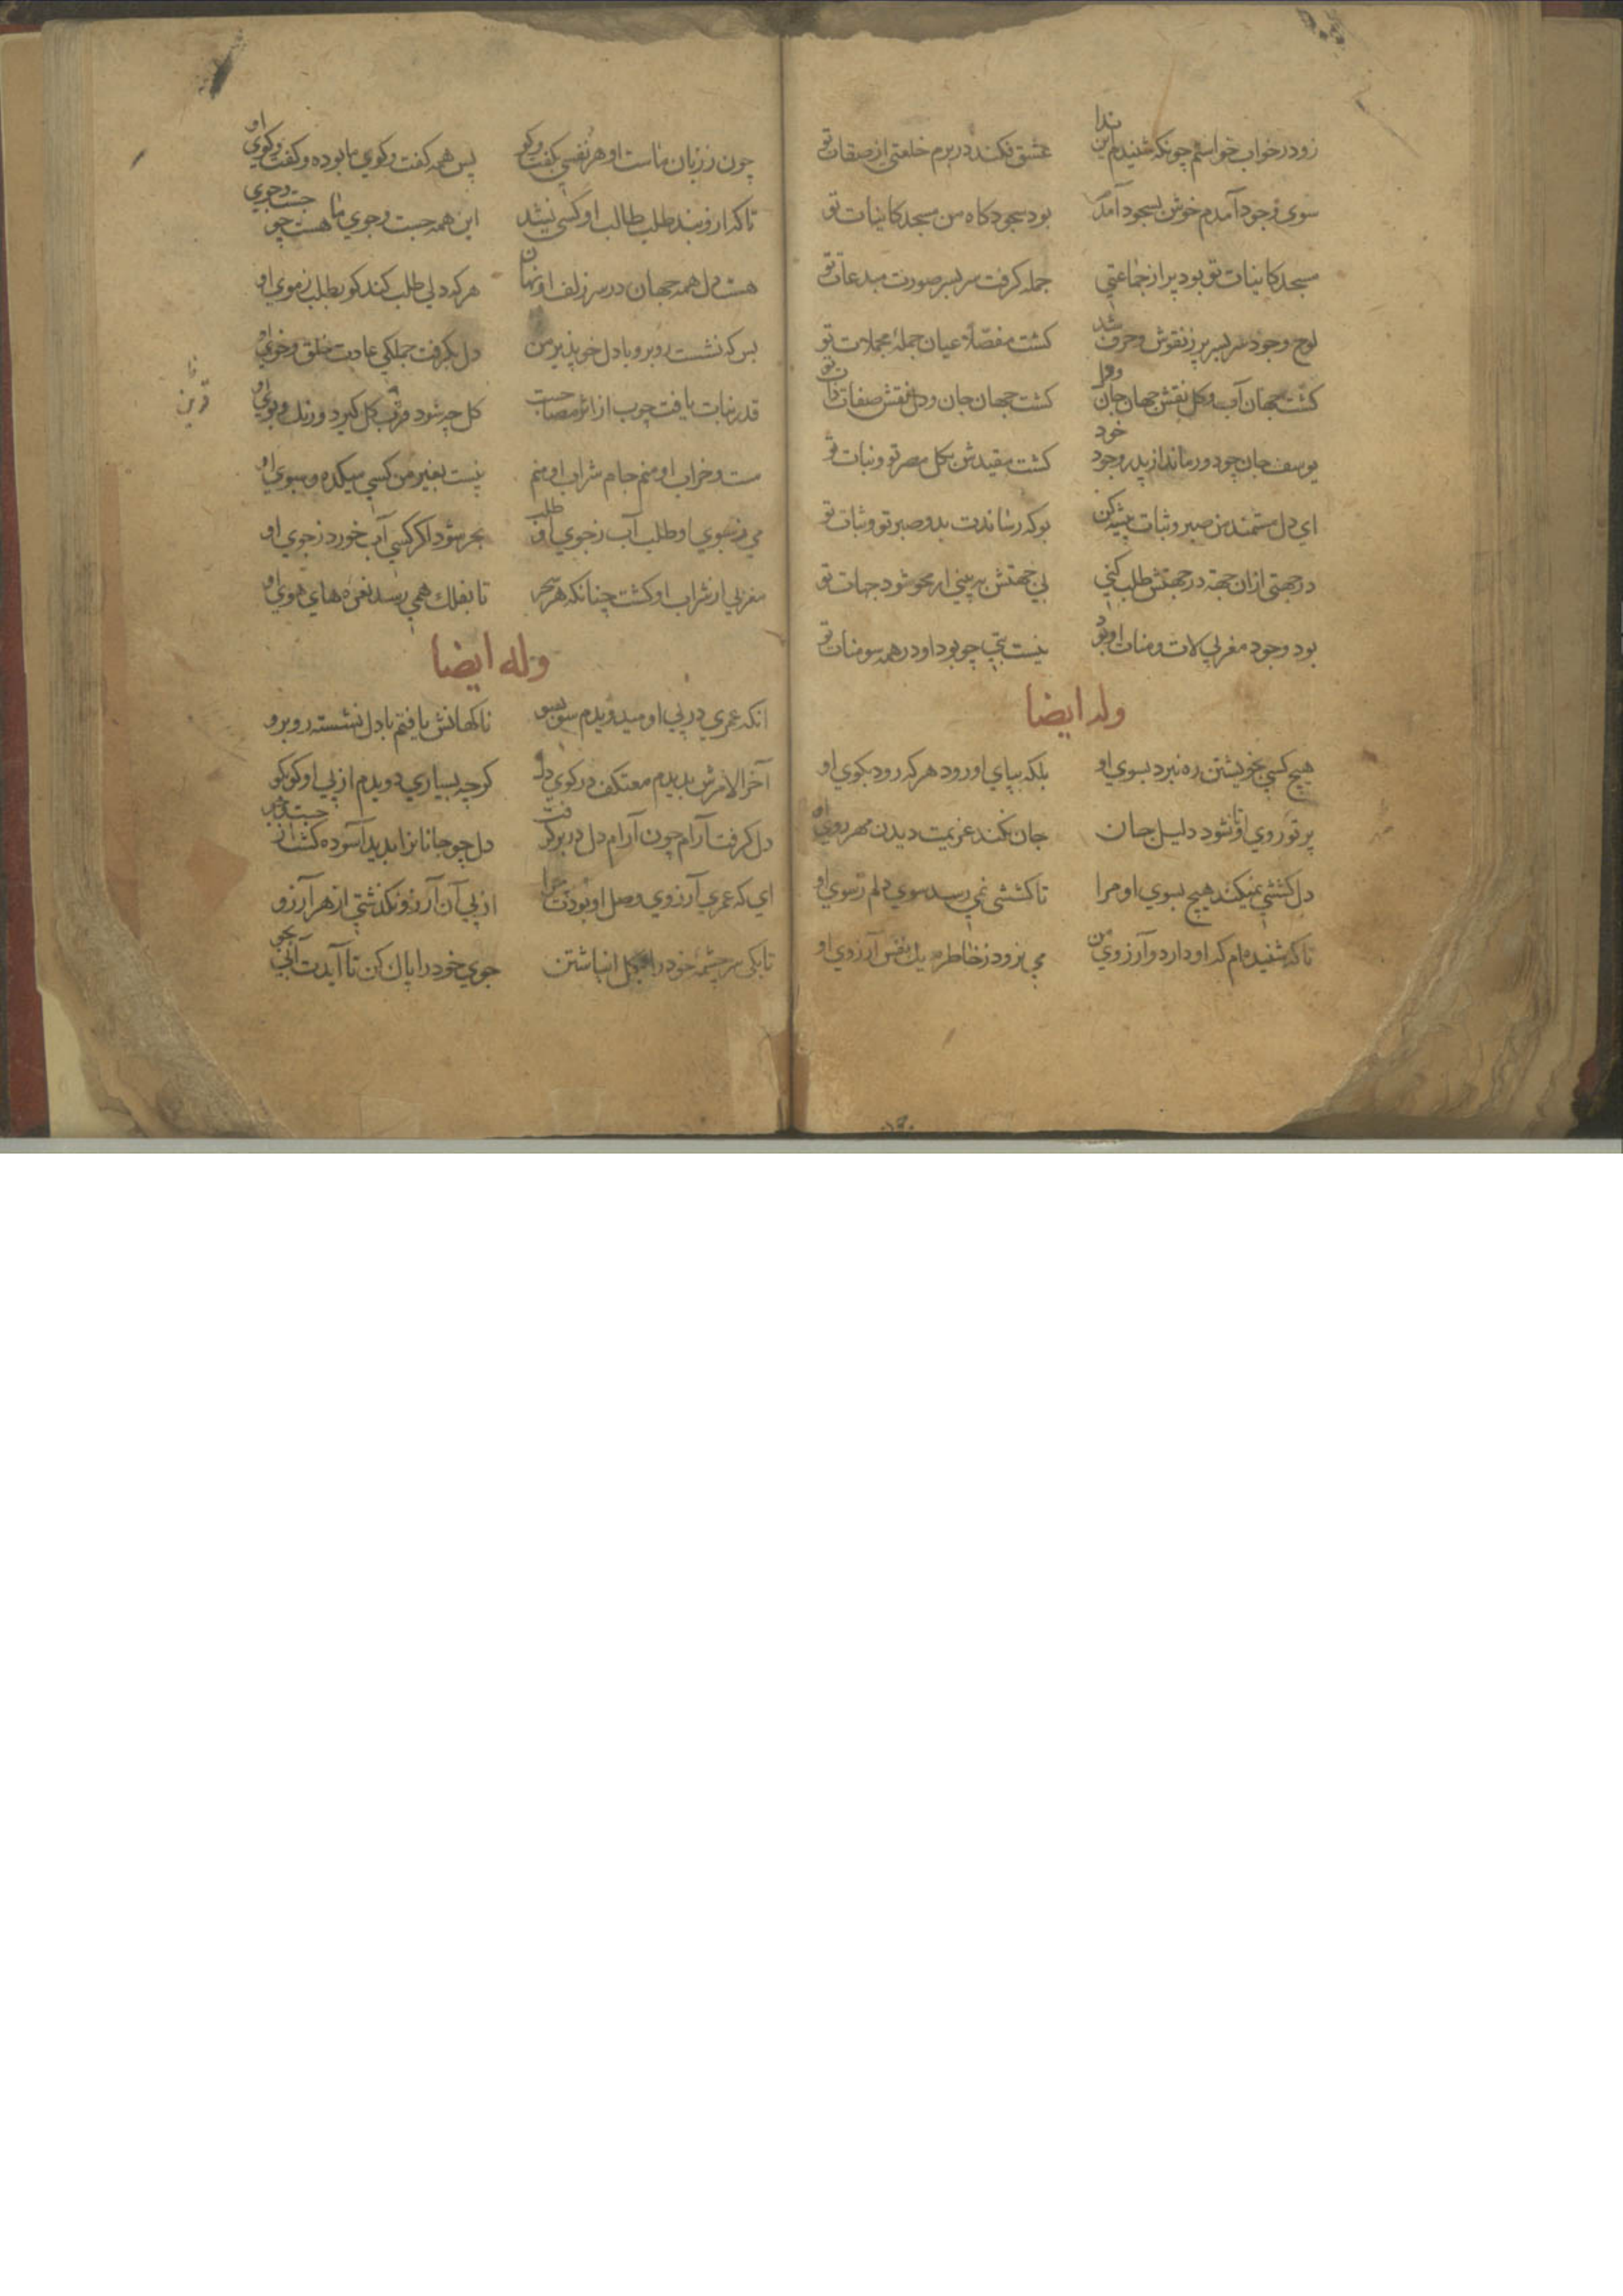 زود در خواب خواستم چونکه شنیدم این ندا عشق فکند در برم خلعتی از صفات تو
سوی وجود آمدم خوش بسجود آمدم بود سجودکاه من مسجد کاینات تو
مسجد کاینات تو بود پر از جماعتی جمله کرفت سر بسر صورت مبدعات تو
لوح وجود سر بسر پر ز نقوش و حرف شد کشت مفصلا عیان جملهٔ مجملات تو
کشت جهان آب و کل نقش جهان جان و دل کشت جهان جان و دل نقش صفات ذات تو
یوسف جان چو دور ماند از پدر وجود خود کشت مقید تن مکل مصر تو و نبات تو
ای دل مستمند من صبر و ثبات پیشه کن بو که رساندت بدو صبر تو و ثبات تو
در جهتی ازان جهة در جهتش طلب کنی بی جهتش ببینی ار محو شود جهات تو
بود وجود مغربی لات و منات او بود نیست بتی چو بود او در همه سومنات تو
وله ایضا
هیچ کسی بخویشتن ره نبرد بسوی او بلکه بپای او رود هر که رود بکوی او
پرتو روی او تا نشود دلیل جان جان نکند عزیمت دیدن مهر روی او
دل کششی نمیکند هیچ بسوی او مرا تا کششی نمی رسد سوی دلم ز سوی او
تا که شنیده ام که او دارد و آرزوی من می نرود ز خاطرم یک نفس آرزوی او
چون ز زبان ماست او هر نفسی بکفت وکو پس همه کفت وکوی ما بوده و کفت وکوی او
تا که ازو نبد طلب طالب او کسی نشد این همه جست وجوی ما هست چو جست وجوی
هست دل همه جهان در سر زلف او نهان هر که دلی طلب کند کو بطلب ز موی او
بس که نشست روبرو با دل خوپذیر من دل بکرفت جملکی عادت خلق و خوی او
قدر نبات یافت چوب از اثر مصاحبت کل چو شود قرین کل کیرد و رنک و بوی او
قرین
مست و خراب او منم جام شراب او منم نیست بغیر من کسی میکده و سبوی او
می ز سبوی او طلب آب ز جوی او طلب بحر شود اکر کسی آب خورد ز جوی او
مغربی از شراب او کشت چنانکه هر سحر تا بفلک همی رسد نعره های هوی او
وله ایضا
انکه عمری در پی او میدویدم سو بسو ناکهانش یافتم با دل نشسته روبرو
آخرالامرش بدیدم معتکف در کوی دل کرچه بسیاری دویدم از پی او کو بکو
دل کرفت آرام چون آرام دل در بر کرفت دل چو جانانرا بدید آسوده کشت از جست وجو
ای که عمری آرزوی وصل او بودت چرا از پی آن آرزو نکذشتی از هر آرزو
تا بکی سرچشمهٔ خود را بکل انباشتن جوی خود را پاک کن تا آیدت آبی بجو